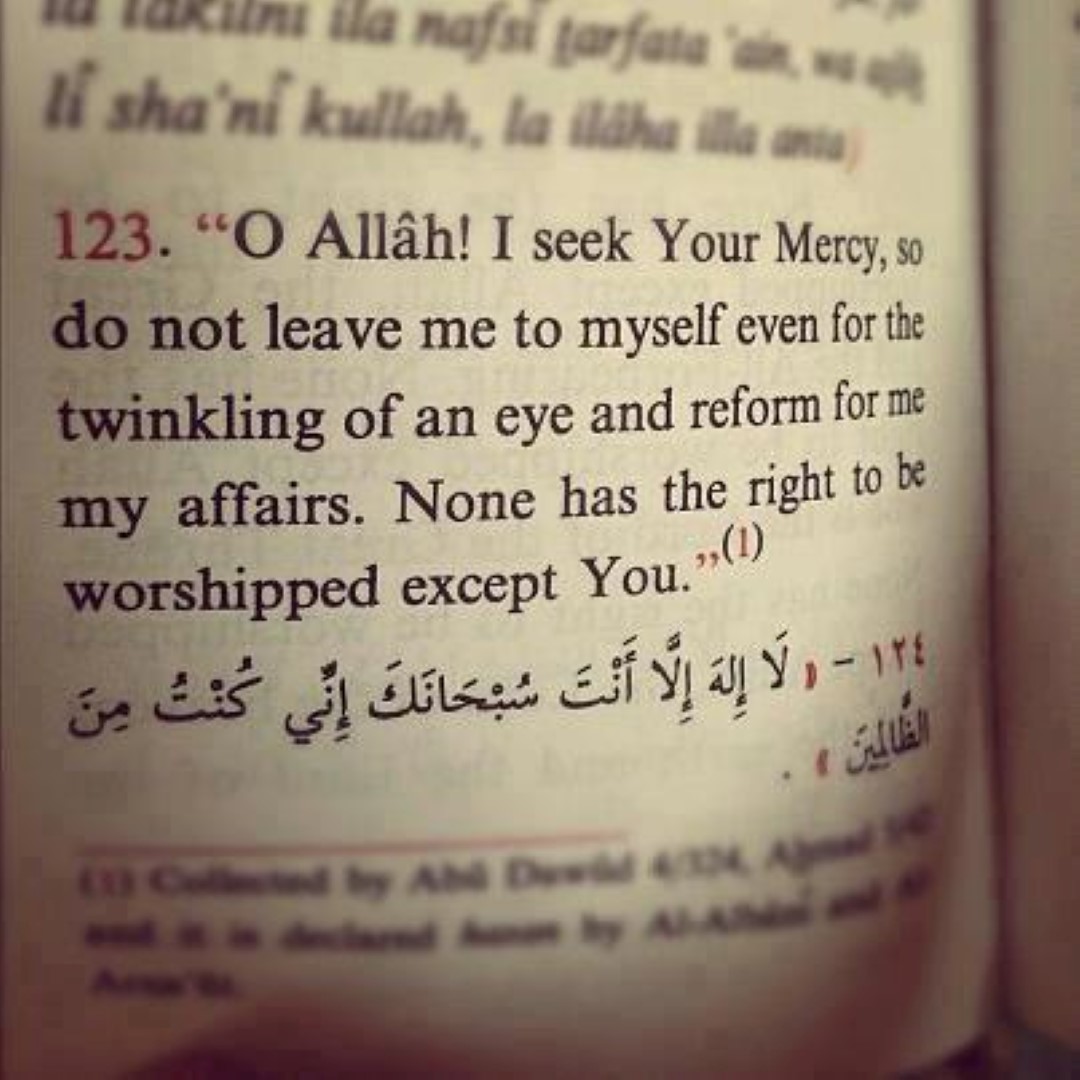 la takilni ila nafsî ṯarfata 'ain, wa aṣliḥ
lî sha'nî kullah, la ilâha illa anta)
123. “O Allâh! I seek Your Mercy, so
do not leave me to myself even for the
twinkling of an eye and reform for me
my affairs. None has the right to be
worshipped except You.”(1)
١٢٤ – « لَا إِلهَ إِلَّا أَنْتَ سُبْحَانَكَ إِنِّي كُنْتُ مِنَ
الظَّالِمِينَ » .
(1) Collected by Abû Dawûd 4/324, Aḥmad
and it is declared hasan by Al-Albânî and